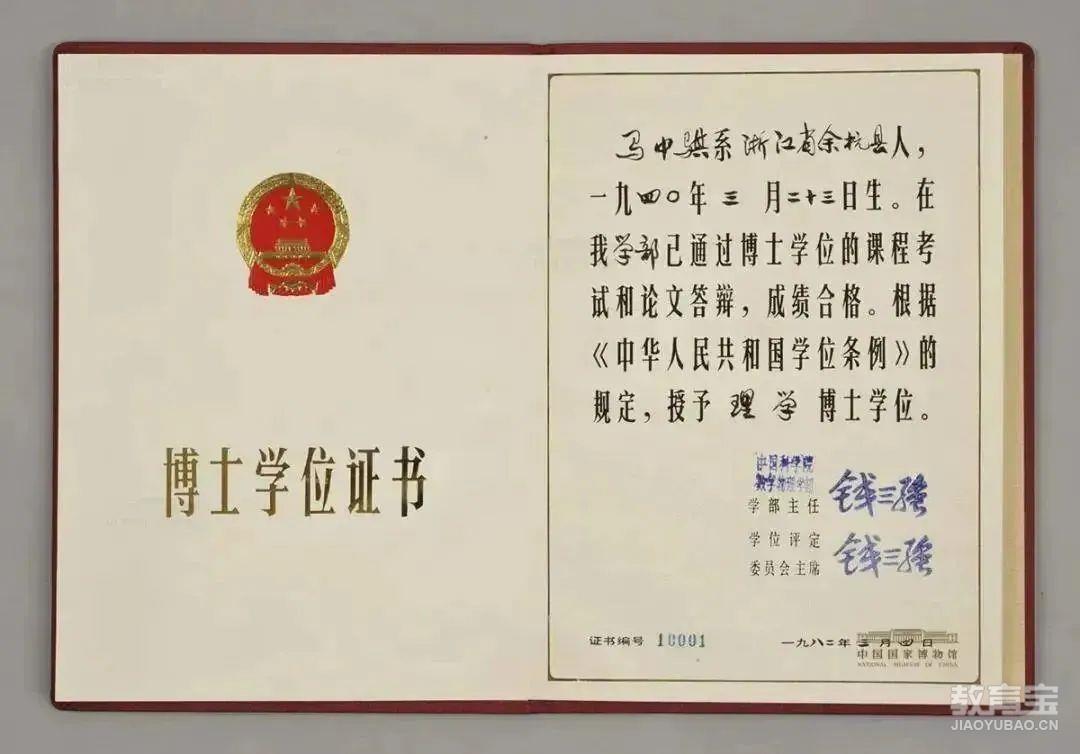 博士学位证书
马中骐系浙江省余杭县人，
一九四〇年三月二十三日生。在
我学部已通过博士学位的课程考
试和论文答辩，成绩合格。根据
《中华人民共和国学位条例》的
规定，授予理学博士学位。
中国科学院
数学物理学部
学部主任 钱三强
学位评定
委员会主席 钱三强
证书编号 10001 一九八二年三月四日
中国国家博物馆
NATIONAL MUSEUM OF CHINA
教育宝
JIAOYUBAO.CN